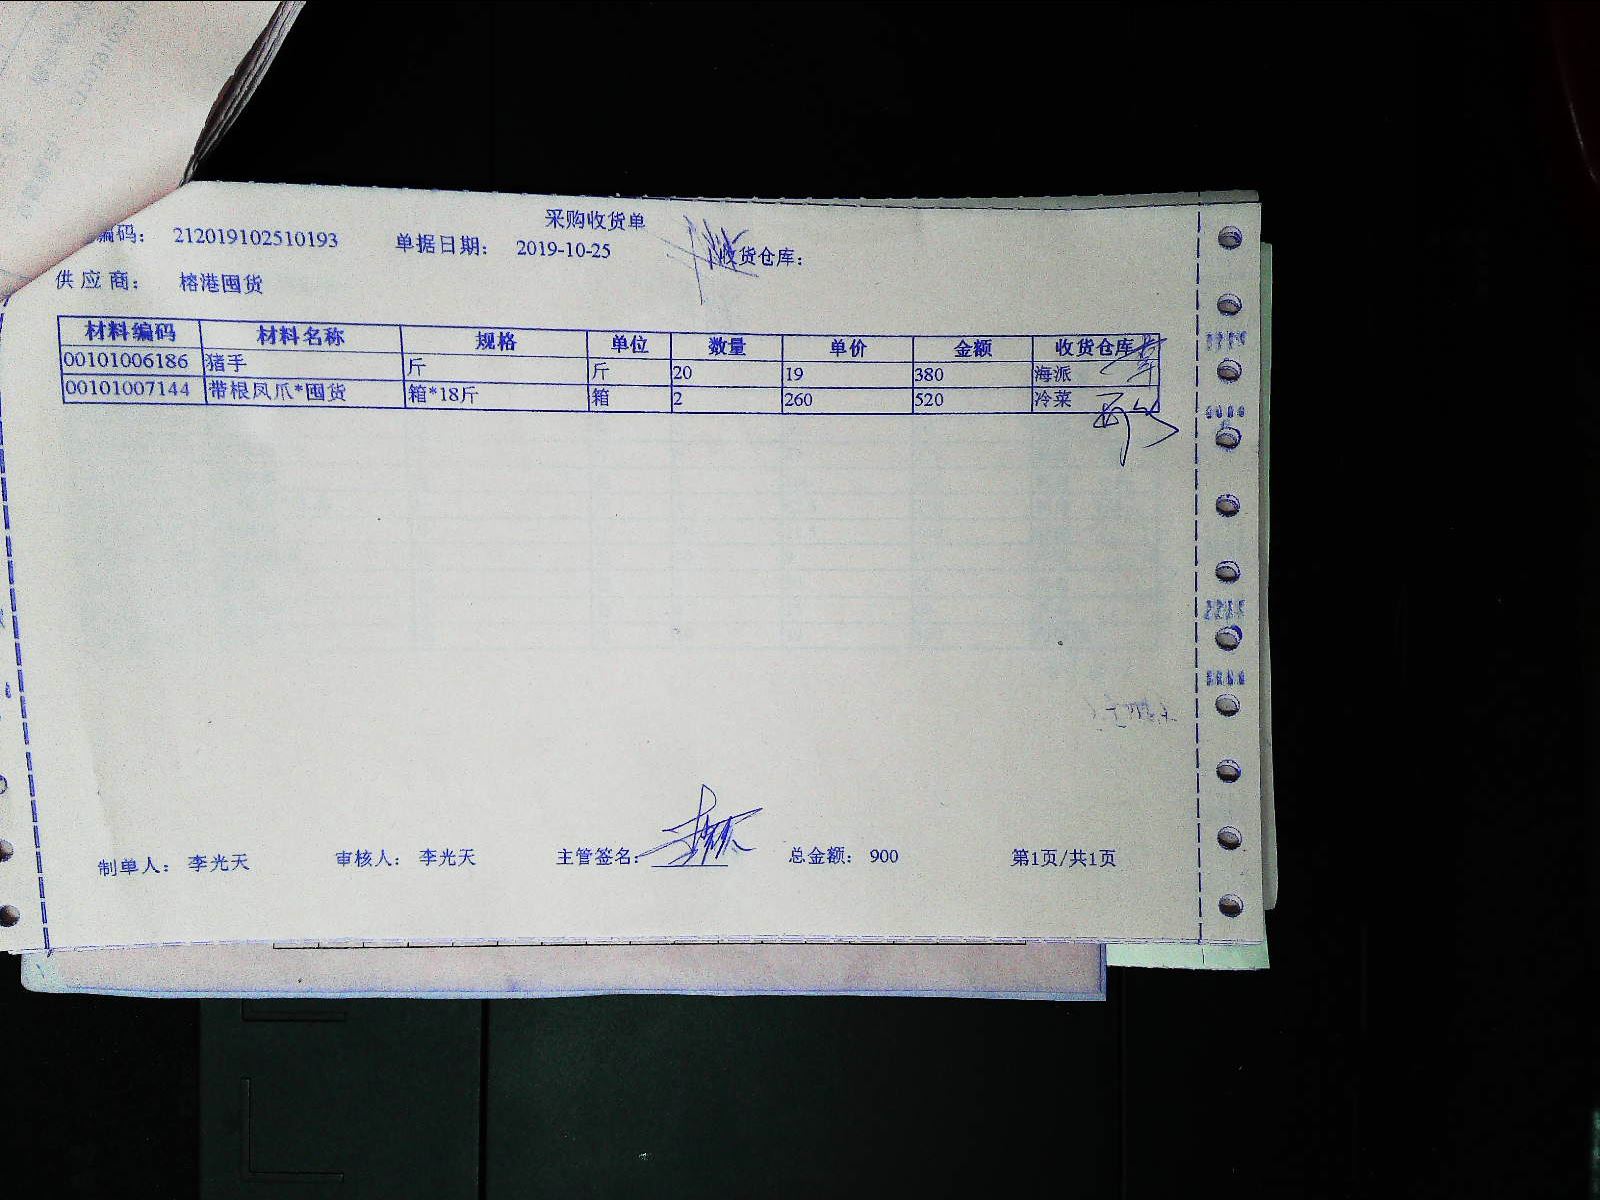 采购收货单
编码: 212019102510193 单据日期: 2019-10-25 收货仓库:
供应商: 榕港囤货
材料编码 材料名称 规格 单位 数量 单价 金额 收货仓库
00101006186 猪手 斤 斤 20 19 380 海派
00101007144 带根凤爪*囤货 箱*18斤 箱 2 260 520 冷菜
制单人: 李光天 审核人: 李光天 主管签名: 总金额: 900 第1页/共1页